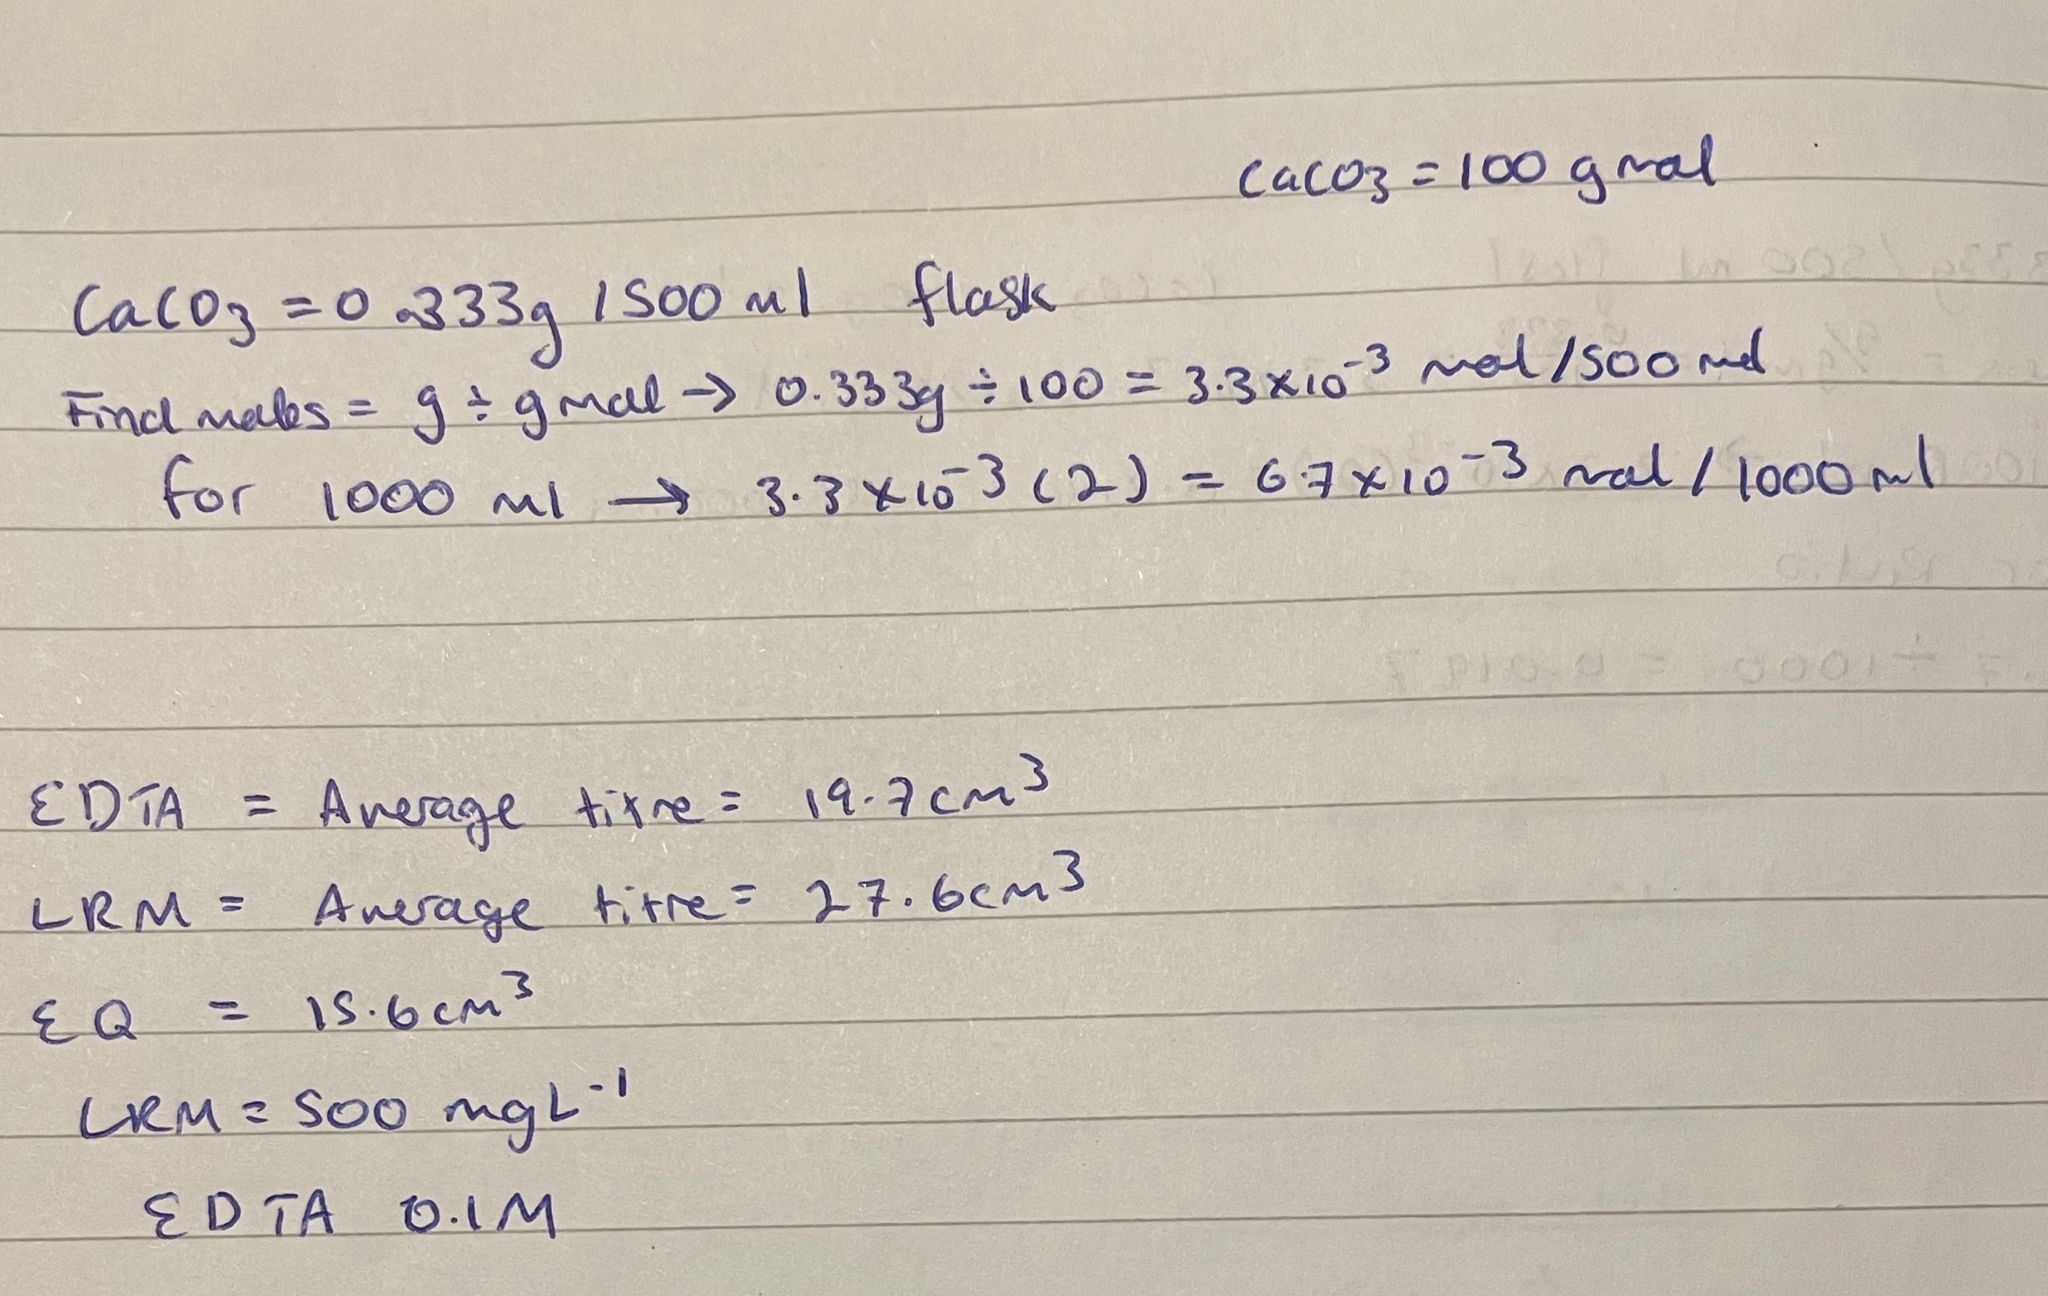 CaCO3 = 100 g mol
CaCO3 = 0.333g / 500 ml flask
Find moles = g ÷ g mol → 0.333g ÷ 100 = 3.3 x 10⁻³ mol / 500 ml
for 1000 ml → 3.3 x 10⁻³ (2) = 6.7 x 10⁻³ mol / 1000 ml
EDTA = Average titre = 19.7 cm³
LRM = Average titre = 27.6 cm³
EQ = 15.6 cm³
LRM = 500 mg L⁻¹
EDTA 0.1M